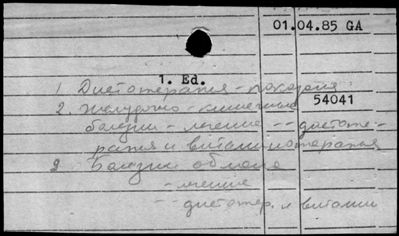 01.04.85 GA
1. Ed.
1. Диетотерапия -
2. Желудочно - кишечные 54041
болезни - лечение -- диетоте-
рапия и витаминотерапия
Болезни обмена
- лечение
-- диетотер. и витамин